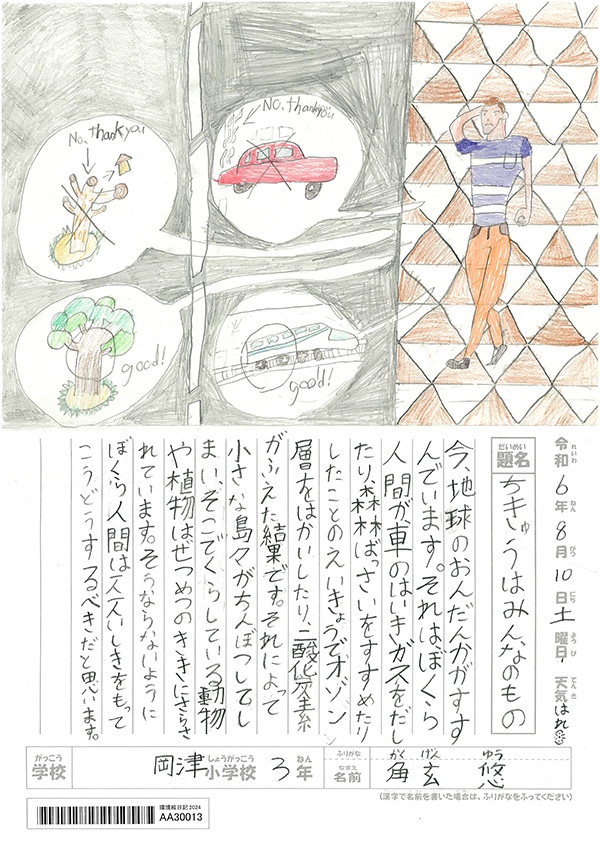 No, thank you
No, thank you
good!
good!
令和6年8月10日土曜日、天気はれ
れいわ ねん がつ にち ようび てんき
だいめい
題名
ちきゅうはみんなのもの
今、地球のおんだんかがすす
んでいます。それはぼくら
人間が、車のはいきガスをだし
たり、森林ばっさいをすすめたり
したことのえいきょうでオゾン
層をはかいしたり、二酸化炭素
がふえた結果です。それによって
小さな島々がちんぼつしてし
まい、そこでくらしている動物
や植物はぜつめつのききにさらさ
れています。そうならないように
ぼくら人間は一人一人いしきをもって
こうどうするべきだと思います。
がっこう
学校
岡津小学校3年
しょうがっこう ねん
ふりがな
かく げん ゆう
なまえ
名前
角 玄 悠
(漢字で名前を書いた場合は、ふりがなをふってください)
環境絵日記2024
AA30013